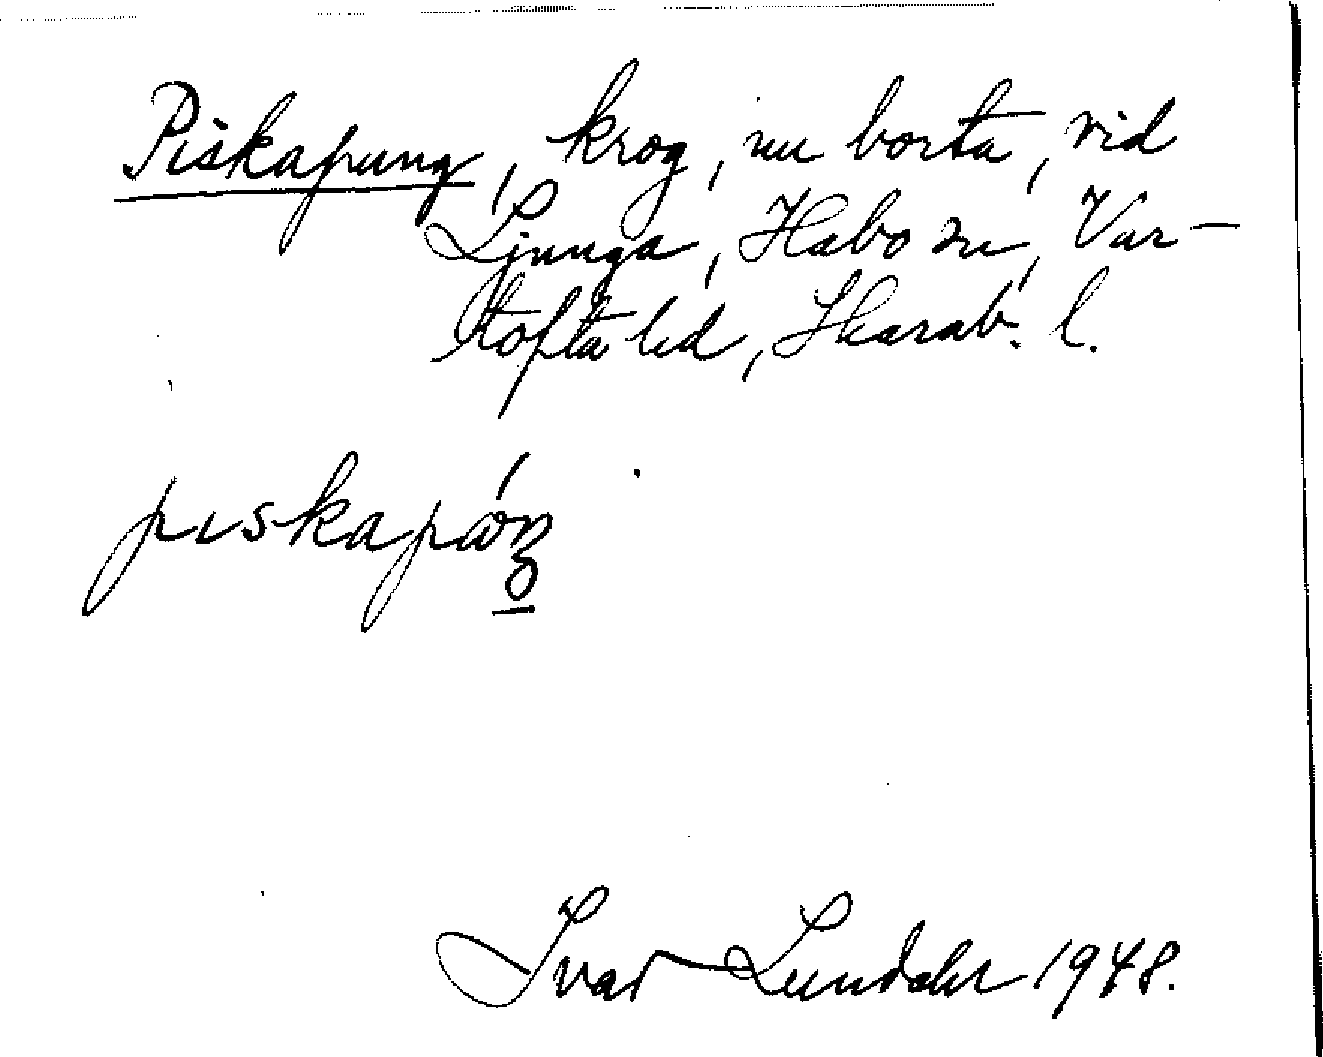 Piskapung, krog, nu borta, vid
Ljunga, Habo sn, Var-
tofta hd, Skarab. l.
pıskapóŋ
Ivar Lundahl 1948.